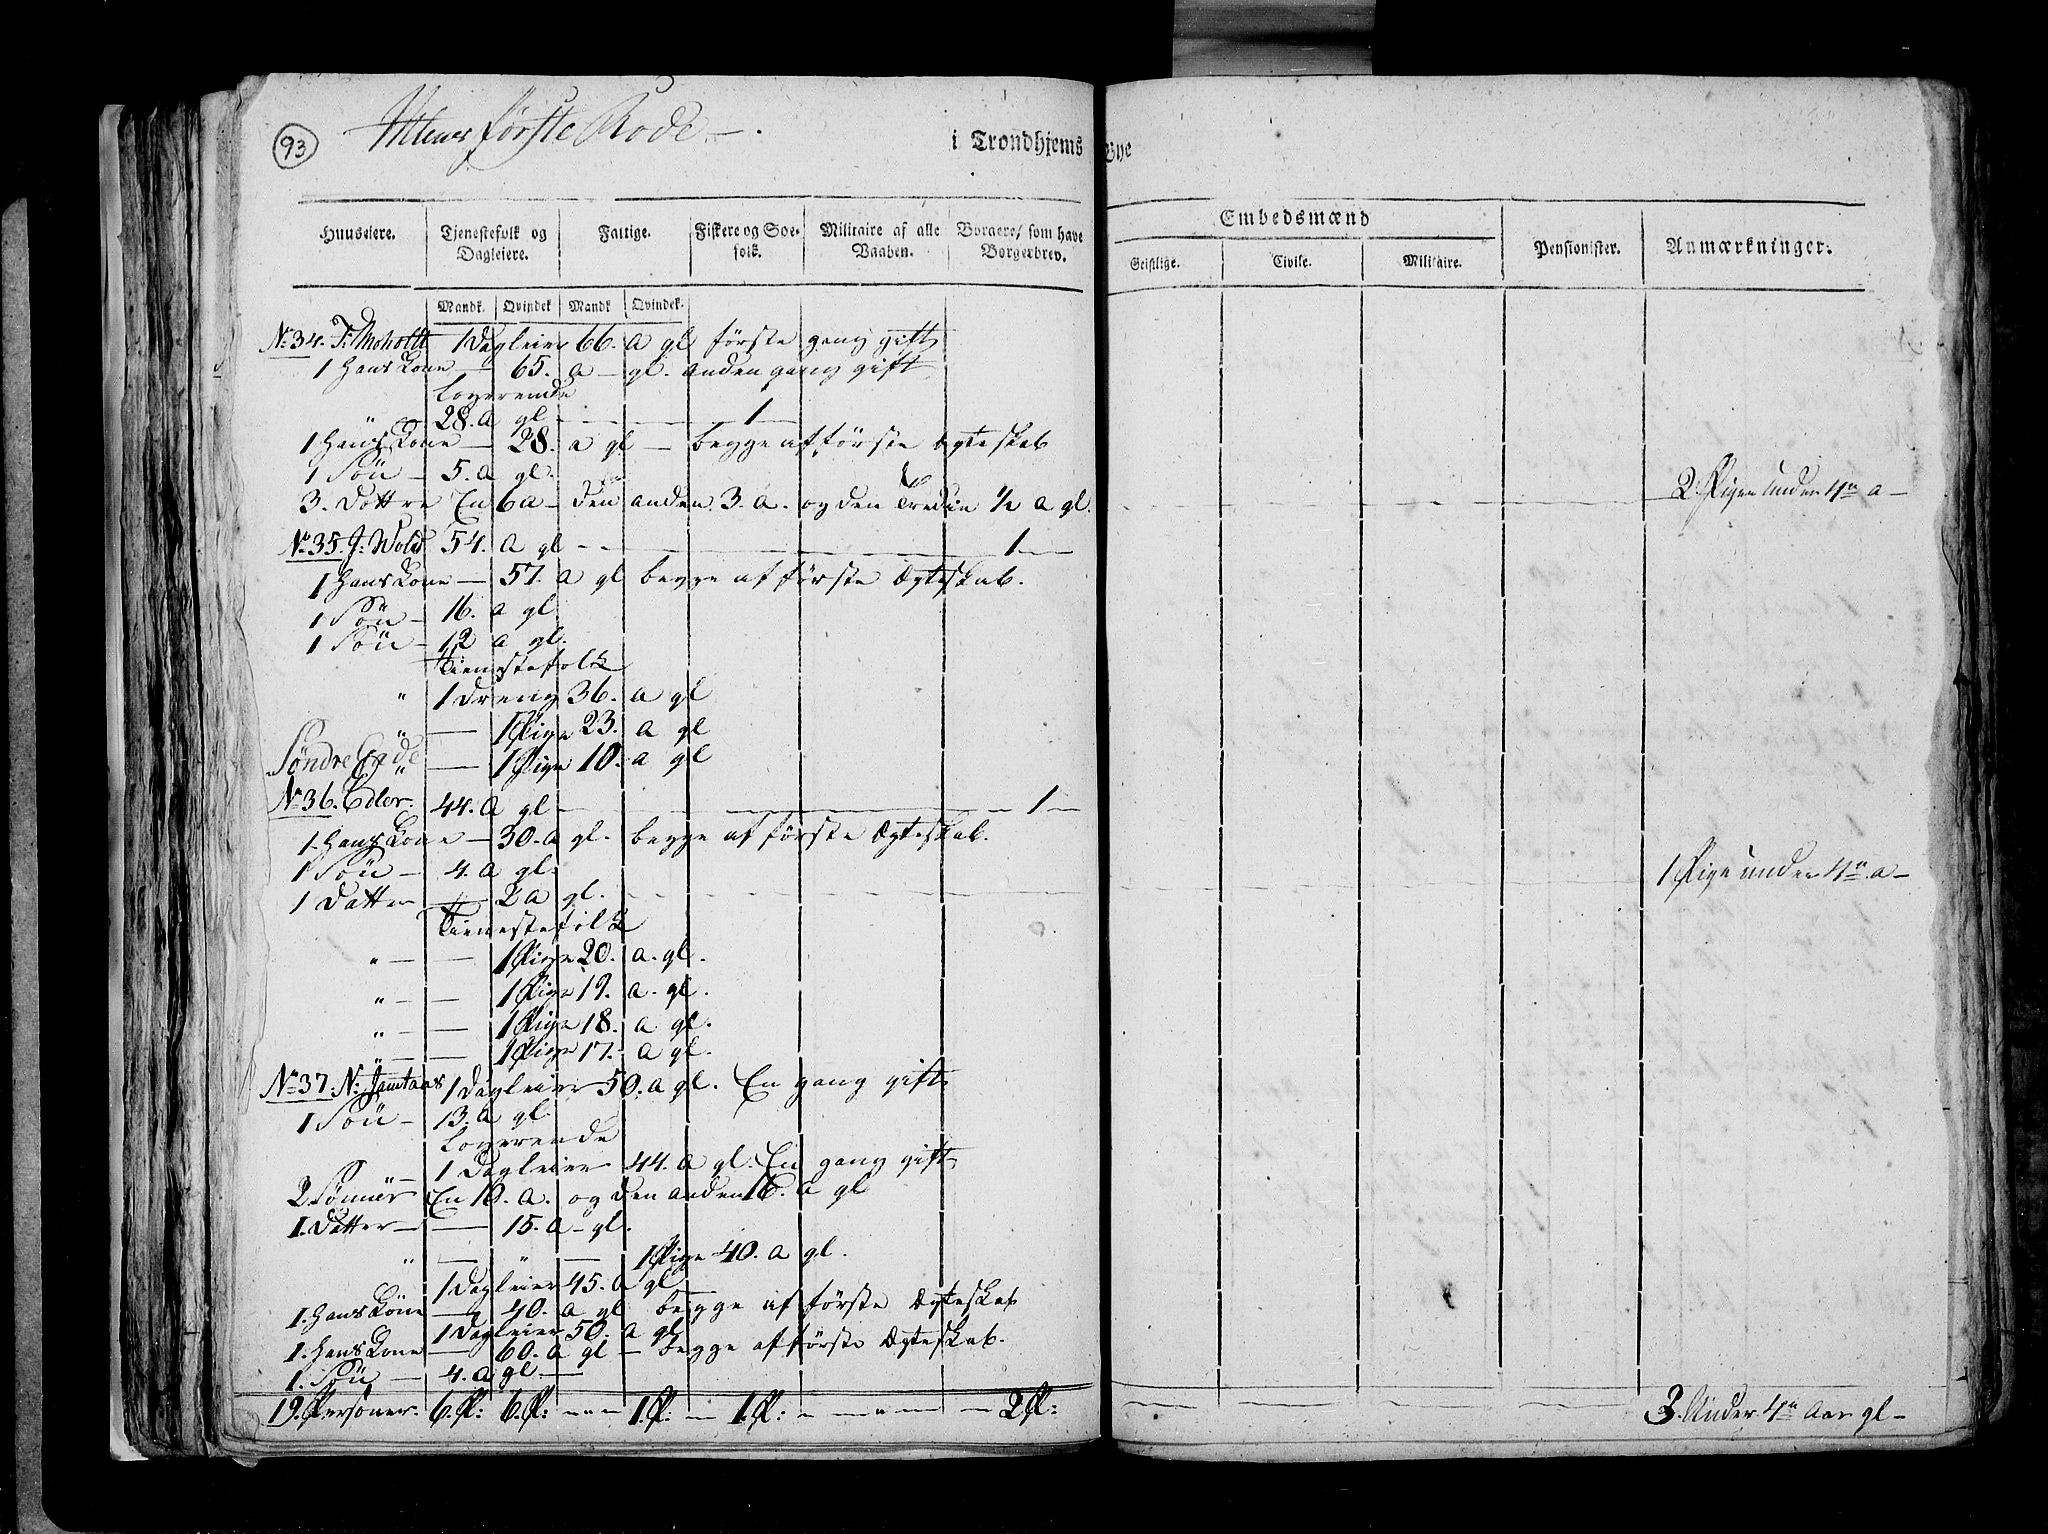 93
Ihlens første Rode —.
i Trondhjems Bye
Huuseiere. Tjenestefolk og Dagleiere. Fattige. Fiskere og Søefolk. Militaire af alle Vaaben. Borgere/ som have Borgerbrev. Embedsmænd Geistlige. Civile. Militaire. Pensionister. Anmærkninger.
Mandk. Qvindek Mandk Qvindek.
No 34. Moholtt 1 Dagleier 66. a gl første gang gift
1 Hans Kone — 65. a — gl. anden gang gift
Logerende
" 28. a gl — — — 1 —
1 Hans Kone — 28. a gl — begge af første Ægteskab
1 Søn — 5. a gl.
3. Døttre En 6 a — den anden 3. a. og den Tredie 1/2 a gl. — 2 Piger under 4re a —
No 35. J: Wold 54. a gl — — — 1 —
1 Hans Kone — 57. a gl begge af første Ægteskab.
1 Søn — 16. a gl
1 Søn — 12 a gl.
Tienestefolk
" 1 Dreng 36. a gl
" — 1 Pige 23. a gl
Søndre Ende " — 1 Pige 10. a gl
No 36. Edler. 44. a gl — — — 1 —
1. Hans Kone — 30. a gl. begge af første Ægteskab.
1 Søn — 4. a gl.
1 Datter — 2 a gl. — — — 1 Pige under 4re a —
Tienestefolk
" — — 1 Pige 20. a. gl.
" — — 1 Pige 19. a. gl.
" — — 1 Pige 18. a gl.
" — — 1 Pige 17. a gl.
No 37. N: Jamtaas 1 Dagleier 50. a gl. En gang gift
1 Søn — 13. a gl.
Logerende
" — 1 Dagleier 44. a gl. En gang gift
2 Sønner En 18. a. og den anden 16. a gl
1. Datter — — 15. a — gl.
" — " — 1 Pige 40. a gl.
" 1 Dagleier 45. a gl
1. Hans Kone — 40. a gl begge af første Ægteskab
1 Dagleier 50. a gl
1. Hans Kone — 60. a gl — begge af første Ægteskab.
1. Søn — 4. a gl —
19. Personer. 6. P: 6. P: — — 1. P: — 1. P: — — — 2 P: 3. Under 4re Aar gl —